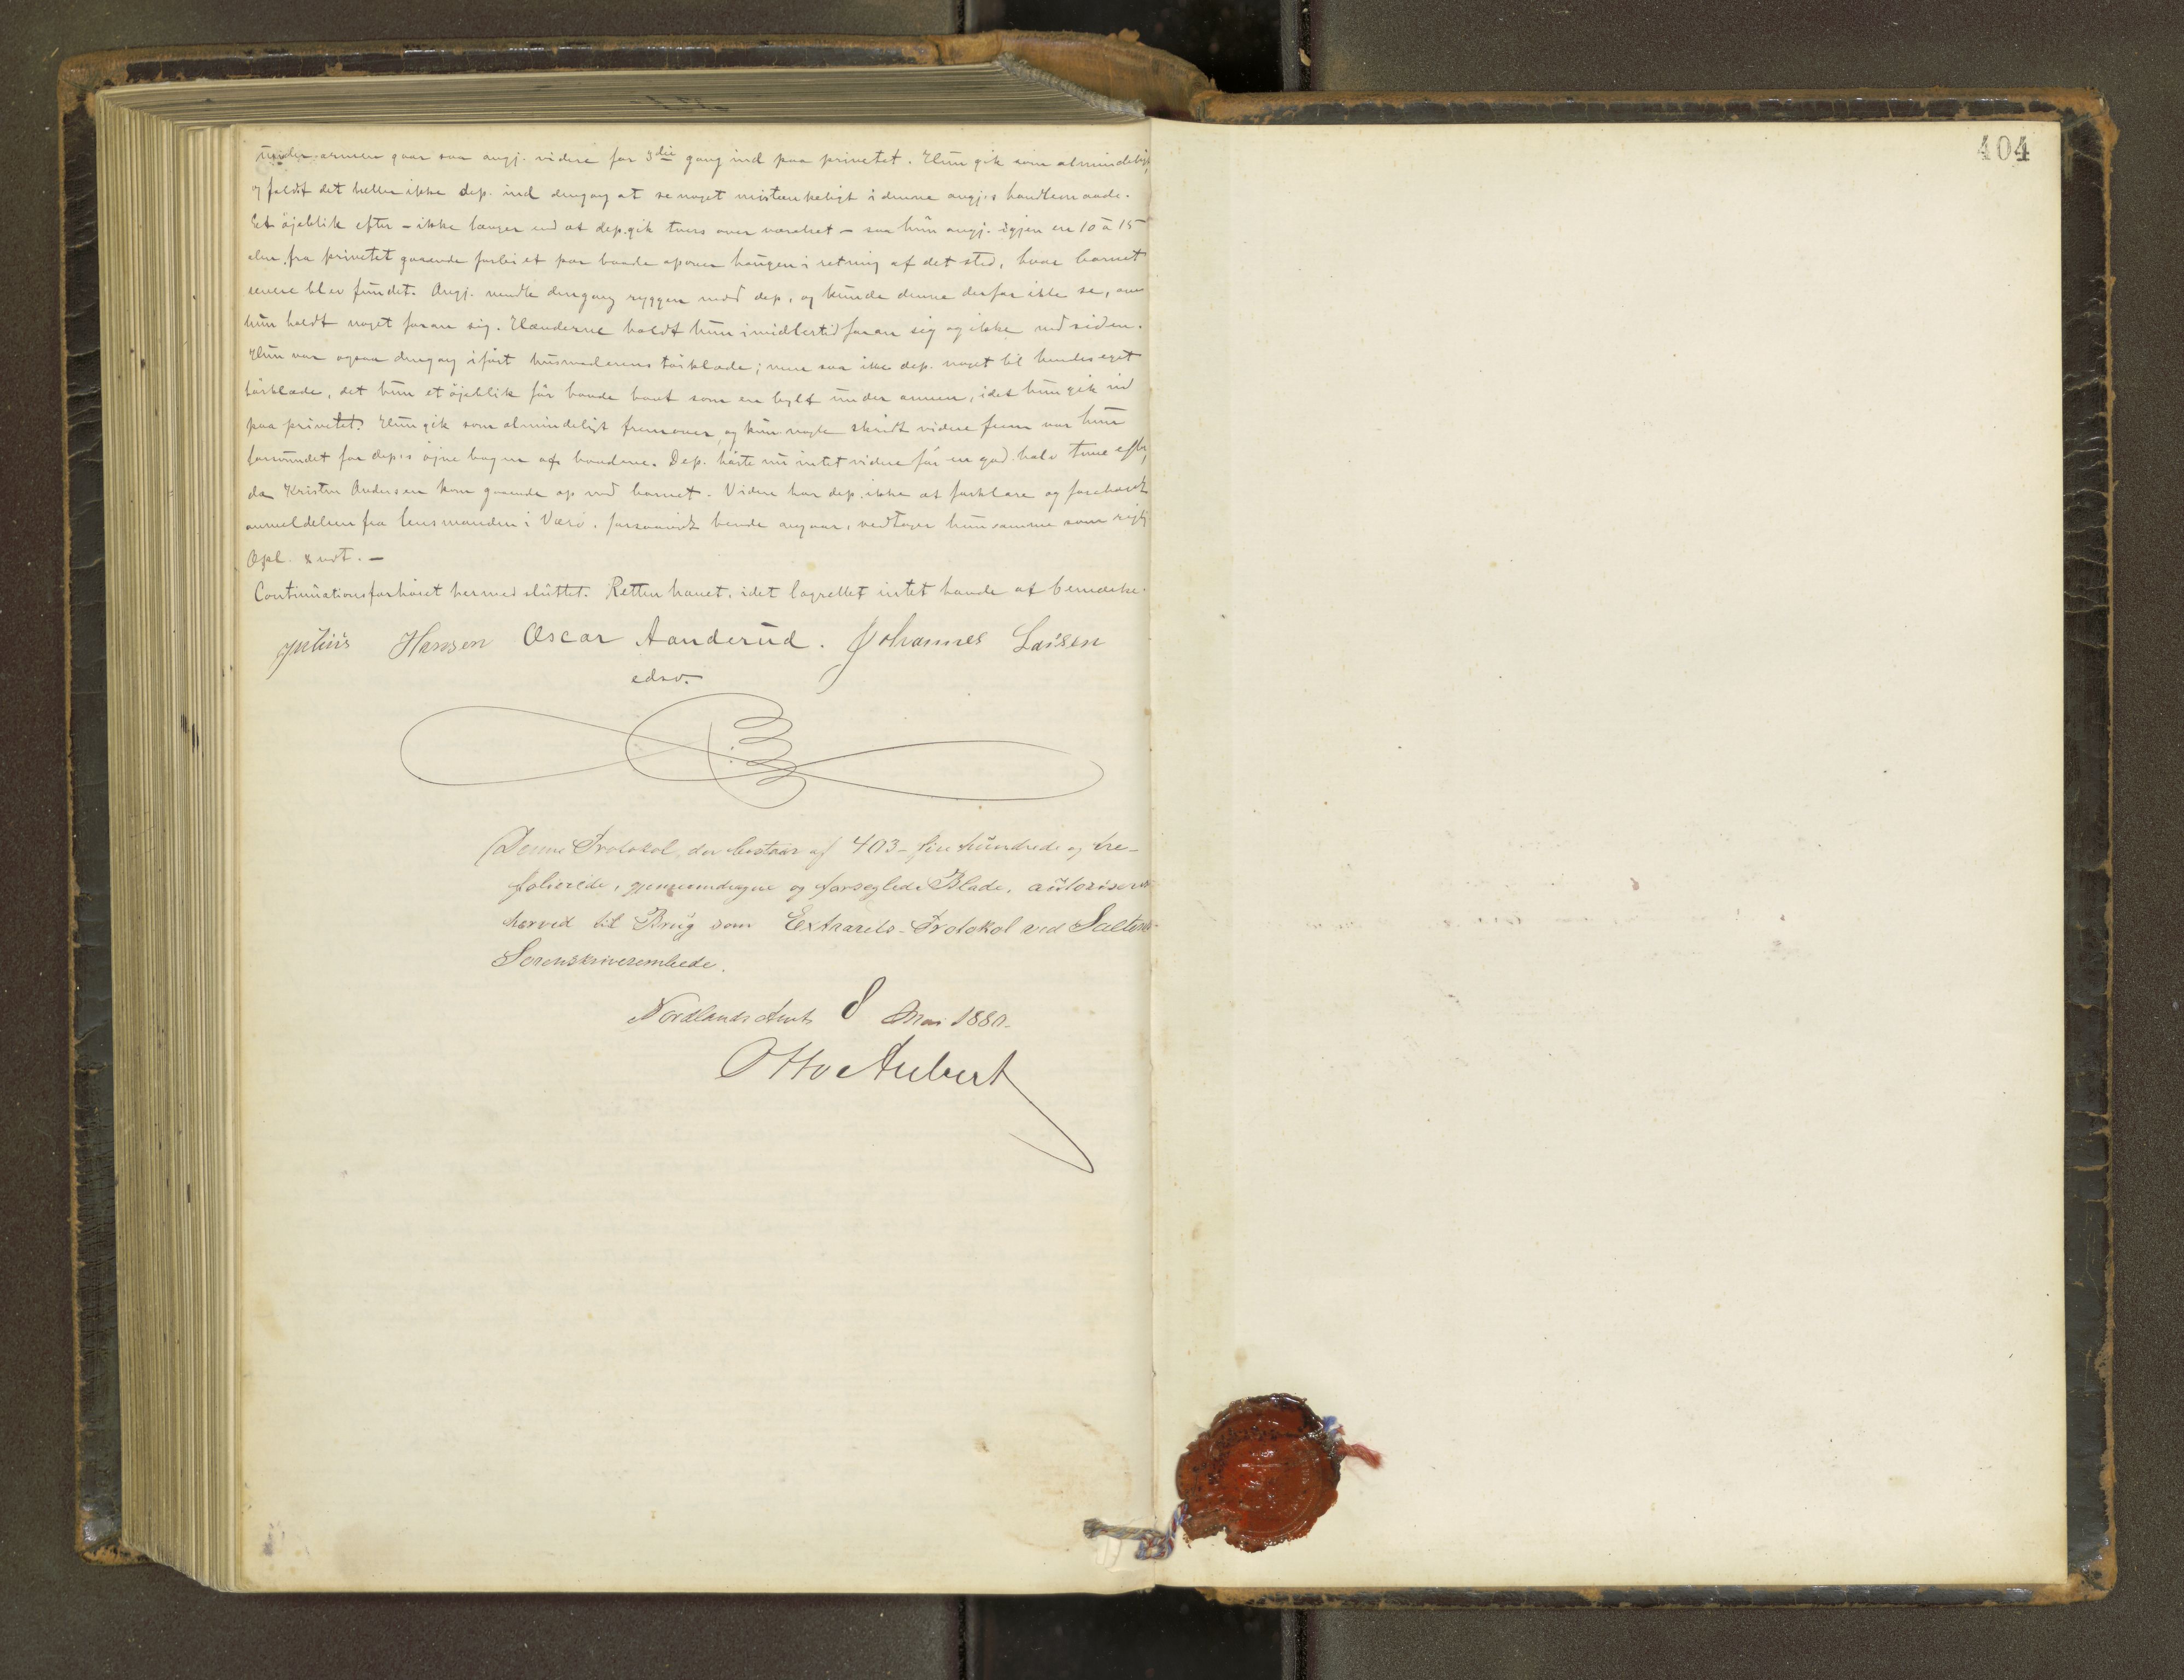 under armen gaar saa angj. videre for 3die gang ind paa privetet. Hun gik som almindeligt,
og faldt det heller ikke dep. ind dengang at se noget mistænkeligt i denne angj.s handlemaade.
Et øjeblik efter – ikke længer end at dep. gik tvers over værelset – saa hun angj. igjen en 10 à 15
alen fra privetet gaaende forbi et par baade opover haugen i retning af det sted, hvor barnet
senere blev fundet. Angj. vendte dengang ryggen mod dep. og kunde denne derfor ikke se, om
hun holdt noget foran sig. Hænderne holdt hun imidlertid foran sig og ikke ved siden.
Hun var ogsaa dengang iført husmoderens tørklæde; men saa ikke dep. noget til hendes eget
tørklæde, det hun et øjeblik før havde havt som en bylt under armen, idet hun gik ind
paa privetet. Hun gik som almindeligt fremover, og kun nogle skridt videre frem var hun
forsvundet for dep.s øjne bagom af baadene. Dep. hørte nu intet videre før en god halv time efter,
da Kristen Andersen kom gaaende op med barnet. Videre har dep. ikke at forklare og foreholdt
anmeldelsen fra lensmanden i Værø, forsaavidt hende angaar, vedtager hun samme som rigtig
Opl. & vdt. –
Continuationsforhøret hermed sluttet. Retten hævet, idet lagrettet intet havde at bemærke.
Julius Hansen Oscar Aanderud. Johannes Larsen
edsv.
Denne Protokol, der bestaar af 403 – fire hundrede og tre –
folierede, gjennemdragne og forseglede Blade, autoriseres
herved til Brug som Extrarets-Protokol ved Saltens
Sorenskriverembede.
Nordlands Amt 8 Mai 1880.
Otto Aubert
404